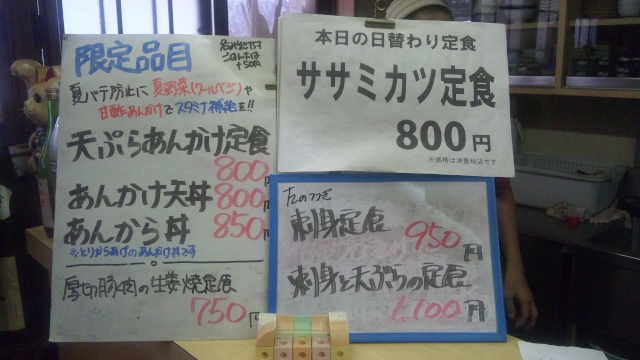 限定品目
夏バテ防止に夏野菜(クールベジ)や
甘酢あんかけでスタミナ補給を!!
天ぷらあんかけ定食
800円
あんかけ天丼 800円
あんから丼 850円
※とりからあげのあんかけ丼です
厚切豚肉の生姜焼定食
750円
本日の日替わり定食
ササミカツ定食
800円
※価格は消費税込です
刺身定食 950円
刺身と天ぷらの定食
1,100円